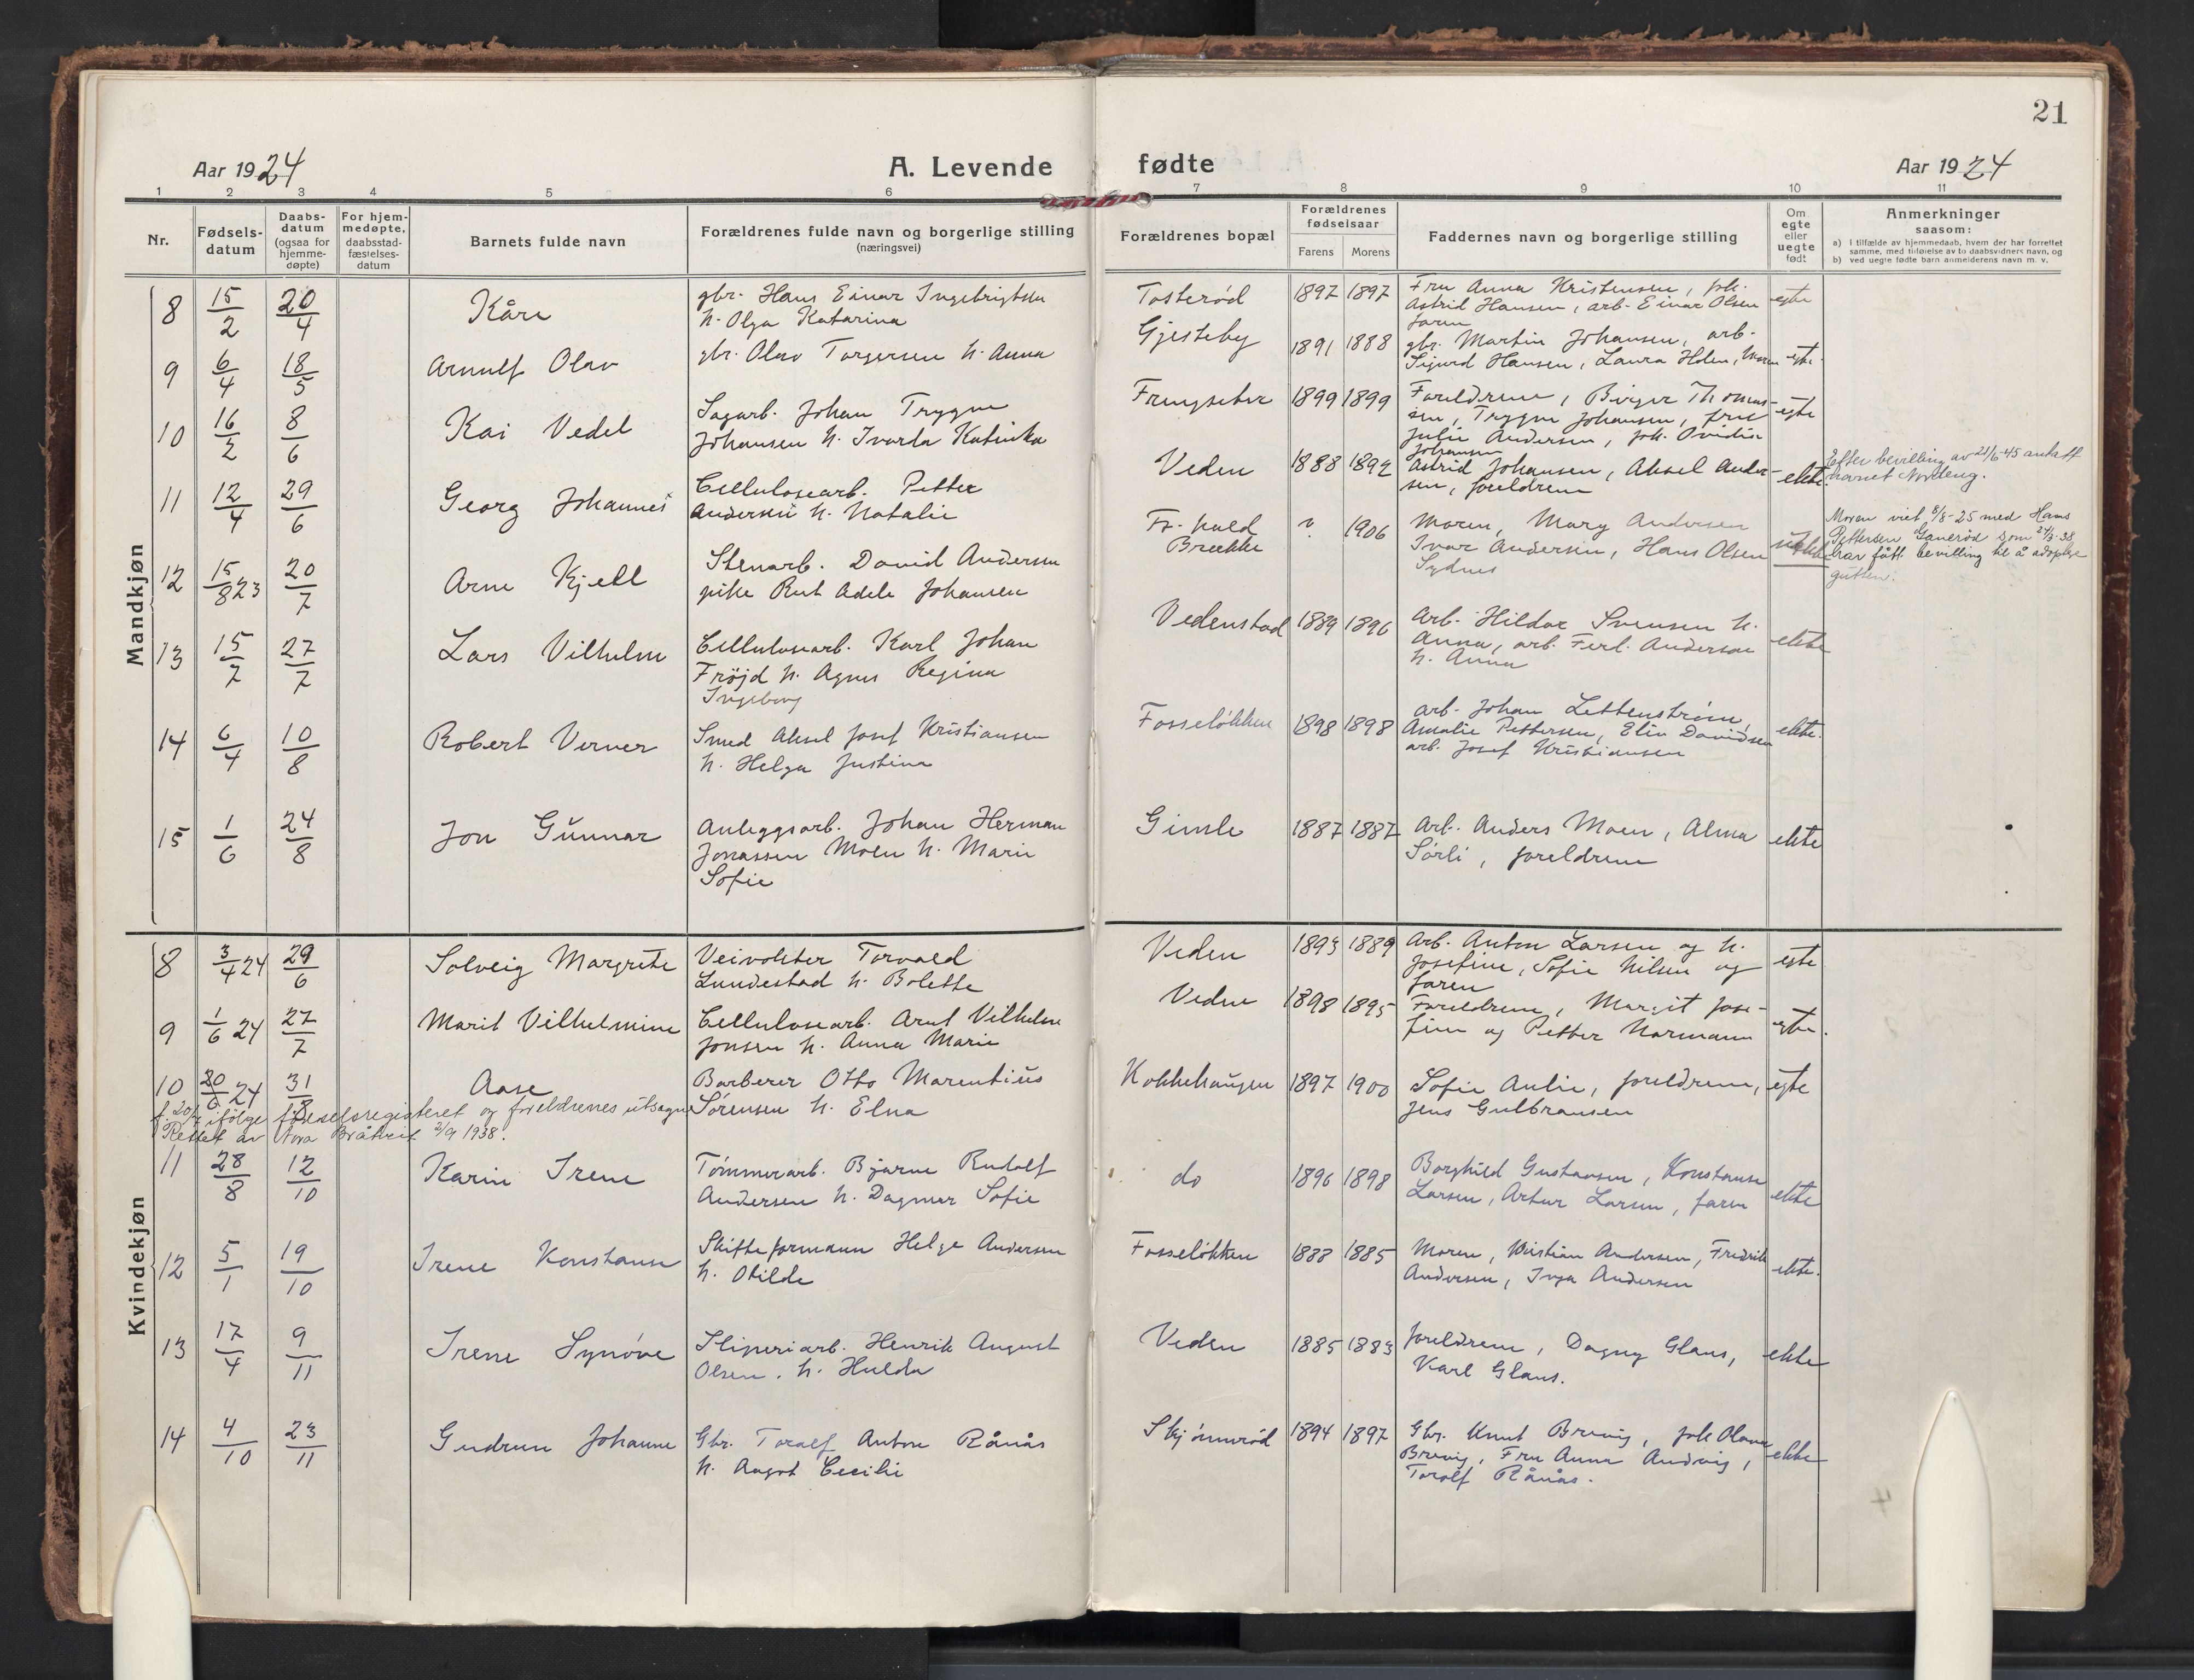 21
Aar 1924
A. Levende
fødte
Aar 1924
1 2 3 4 5 6 7 8 9 10 11
Nr.
Fødsels-
datum
Daabs-
datum
(ogsaa for
hjemme-
døpte)
For hjem-
medøpte,
daabsstad-
fæstelses-
datum
Barnets fulde navn
Forældrenes fulde navn og borgerlige stilling
(næringsvei)
Forældrenes bopæl
Forældrenes
fødselsaar
Farens Morens
Faddernes navn og borgerlige stilling
Om
egte
eller
uegte
født
Anmerkninger
saasom:
a) i tilfælde av hjemmedaab, hvem der har forrettet
samme, med tilføielse av to daabsvidners navn, og
b) ved uegte fødte barn anmelderens navn m. v.
Mandkjøn
8 15/2 20/4 Kåre
gbr. Hans Einar Ingebrigtsen
h. Olga Katarina
Tosterød 1897 1897
Fru Anna Kristensen, frk.
Astrid Hansen, arb. Einar Olsen
faren
egte
9 6/4 18/5 Arnulf Olav
gbr. Olav Torgersen h. Anna
Gjesteby 1891 1888
gbr. Martin Johansen, arb.
Sigurd Hansen, Laura Holm, moren
egte.
10 16/2 8/6 Kai Vedel
Sagarb. Johan Trygve
Johansen h. Ivarda Katinka
Frengseter 1899 1899
Foreldrene, Birger Thomas-
sen, Trygve Johansen, frue
Julie Andersen, frk. Ovidia
Johansen
egte
11 12/4 29/6 Georg Johannes
Cellulosearb. Petter
Andersen h. Natalie
Veden 1888 1892
Astrid Johansen, Aksel Ander-
sen, foreldrene
ekte.
Efter bevilling av 21/6-45 antatt
navnet Nordeng.
12 15/8 23 20/7 Arne Kjell
Stenarb. David Andersen
pike Rut Adele Johansen
Fr. hald
Brække
? 1906
Moren, Mary Andersen
Ivar Andersen, Hans Olsen
Sydnes
uekte
Moren viet 8/8-25 med Hans
Pettersen Ganerød som 24/3-38
har fått bevilling til å adoptere
gutten.
13 15/7 27/7 Lars Vilhelm
Cellulosearb. Karl Johan
Frøjd h. Agnes Regina
Ingeborg
Vedenstad 1889 1896
Arb. Hildor Svensen h.
Anna, arb. Ferd. Anderson
h. Anna
ekte
14 6/4 10/8 Robert Verner
Smed Aksel Josef Kristiansen
h. Helga Justina
Fosseløkken 1898 1898
arb. Johan Lettenstrøm,
Amalie Pettersen, Elin Davidsen
arb. Josef Kristiansen
ekte.
15 1/6 24/8 Jon Gunnar
Anleggsarb. Johan Herman
Jonassen Moen h. Marie
Sofie
Gimle 1887 1887
Arb. Anders Moen, Alma
Sørli, foreldrene
ekte
Kvindekjøn
8 3/4 24 29/6 Solveig Margrete
Veivokter Torvald
Lundestad h. Bolette
Veden 1893 1889
Arb. Anton Larsen og h.
Josefine, Sofie Nilsen og
faren
egte
9 1/6 24 27/7 Marit Vilhelmine
Cellulosearb. Arnt Vilhelm
Jonsen h. Anna Marie
Veden 1898 1895
Foreldrene, Margit Jose-
fine og Petter Normann
egte.
10 20/6 24 31/8 Aase
Barberer Otto Marentius
Sørensen h. Elna
Kokkehaugen 1897 1900
Sofie Aulie, foreldrene,
Jens Gulbransen
egte
f. 20/7 ifølge fødselsregisteret og foreldrenes utsagn
Rettet av Nora Bråtveit 2/9 1938.
11 28/8 12/10 Karin Irene
Tømmerarb. Bjarne Rudolf
Andersen h. Dagmar Sofie
do 1896 1898
Borghild Gustavsen, Konstanse
Larsen, Artur Larsen, faren
ekte
12 5/1 19/10 Irene Konstanse
Skifteformann Helge Andersen
h. Otilde
Fosseløkken 1888 1885
Moren, Kristian Andersen, Fredrik
Andersen, Inga Andersen
ekte.
13 17/4 9/11 Irene Synøve
Sliperiarb. Henrik August
Olsen. h. Hulda
Veden 1885 1883
foreldrene, Dagny Glans,
Karl Glans.
ekte
14 4/10 23/11 Gudrun Johanne
Gbr. Toralf Anton Rånås
h. Angot Cecilie
Skjønnerød 1894 1897
Gbr. Knut Brevig, frk Olava
Brevig, Fru Anna Andvig,
Toralf Rånås.
ekte